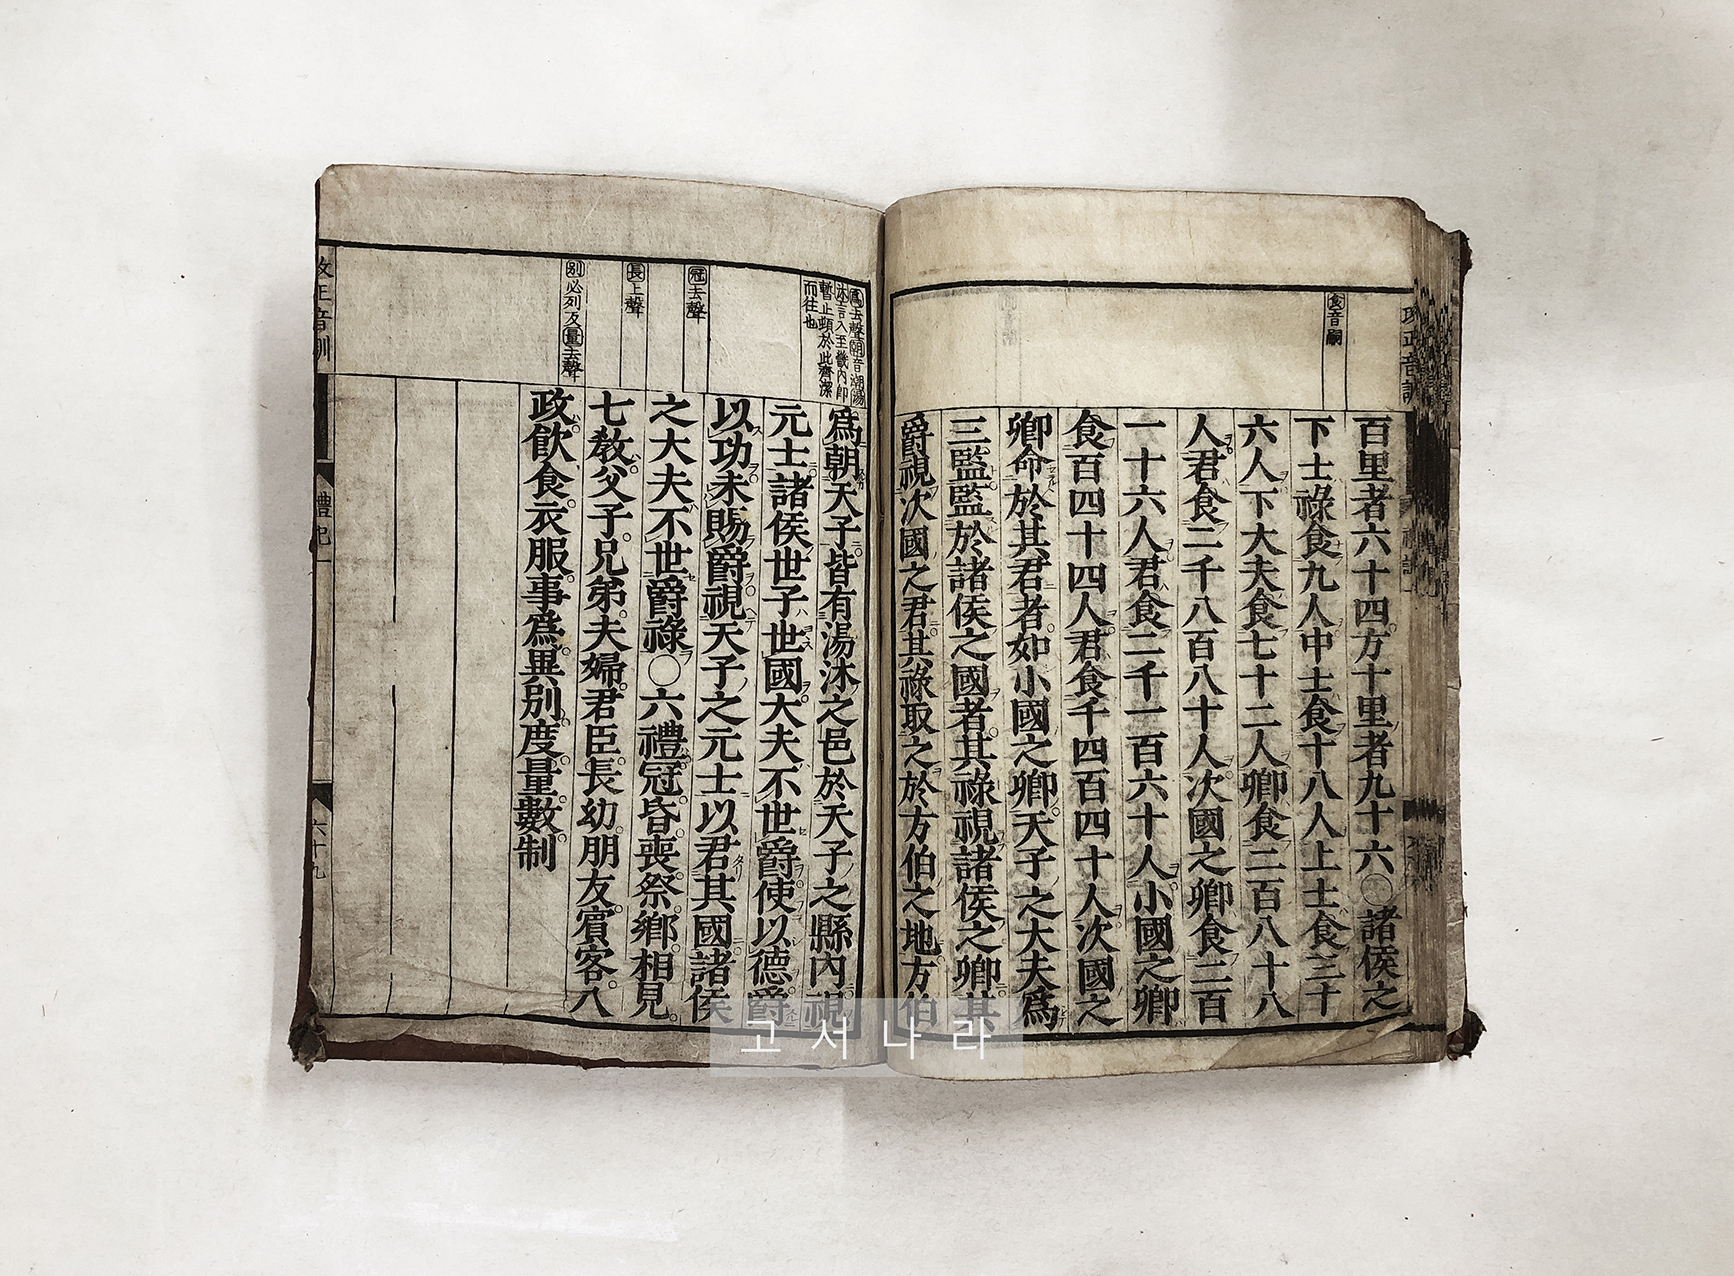 食音嗣
百里者六十四方十里者九十六○諸侯之
下士祿食九人中士食十八人上士食三十
六人下大夫食七十二人卿食二百八十八
人君食二千八百八十人次國之卿食二百
一十六人君食二千一百六十人小國之卿
食百四十四人君食千四百四十人次國之
卿命於其君者如小國之卿天子之大夫爲
三監監於諸侯之國者其祿視諸侯之卿其
爵視次國之君其祿取之於方伯之地方伯
爲去聲朝音潮湯
沐言入至畿內即
暫止頓於此齊潔
而往也
冠去聲
長上聲
別必列反量去聲
爲朝天子皆有湯沐之邑於天子之縣內視
元士諸侯世子世國大夫不世爵使以德爵
以功未賜爵視天子之元士以君其國諸侯
之大夫不世爵祿○六禮冠昏喪祭鄉相見
七敎父子兄弟夫婦君臣長幼朋友賓客八
政飮食衣服事爲異別度量數制
改正音訓
禮記一
六十九
고서나라